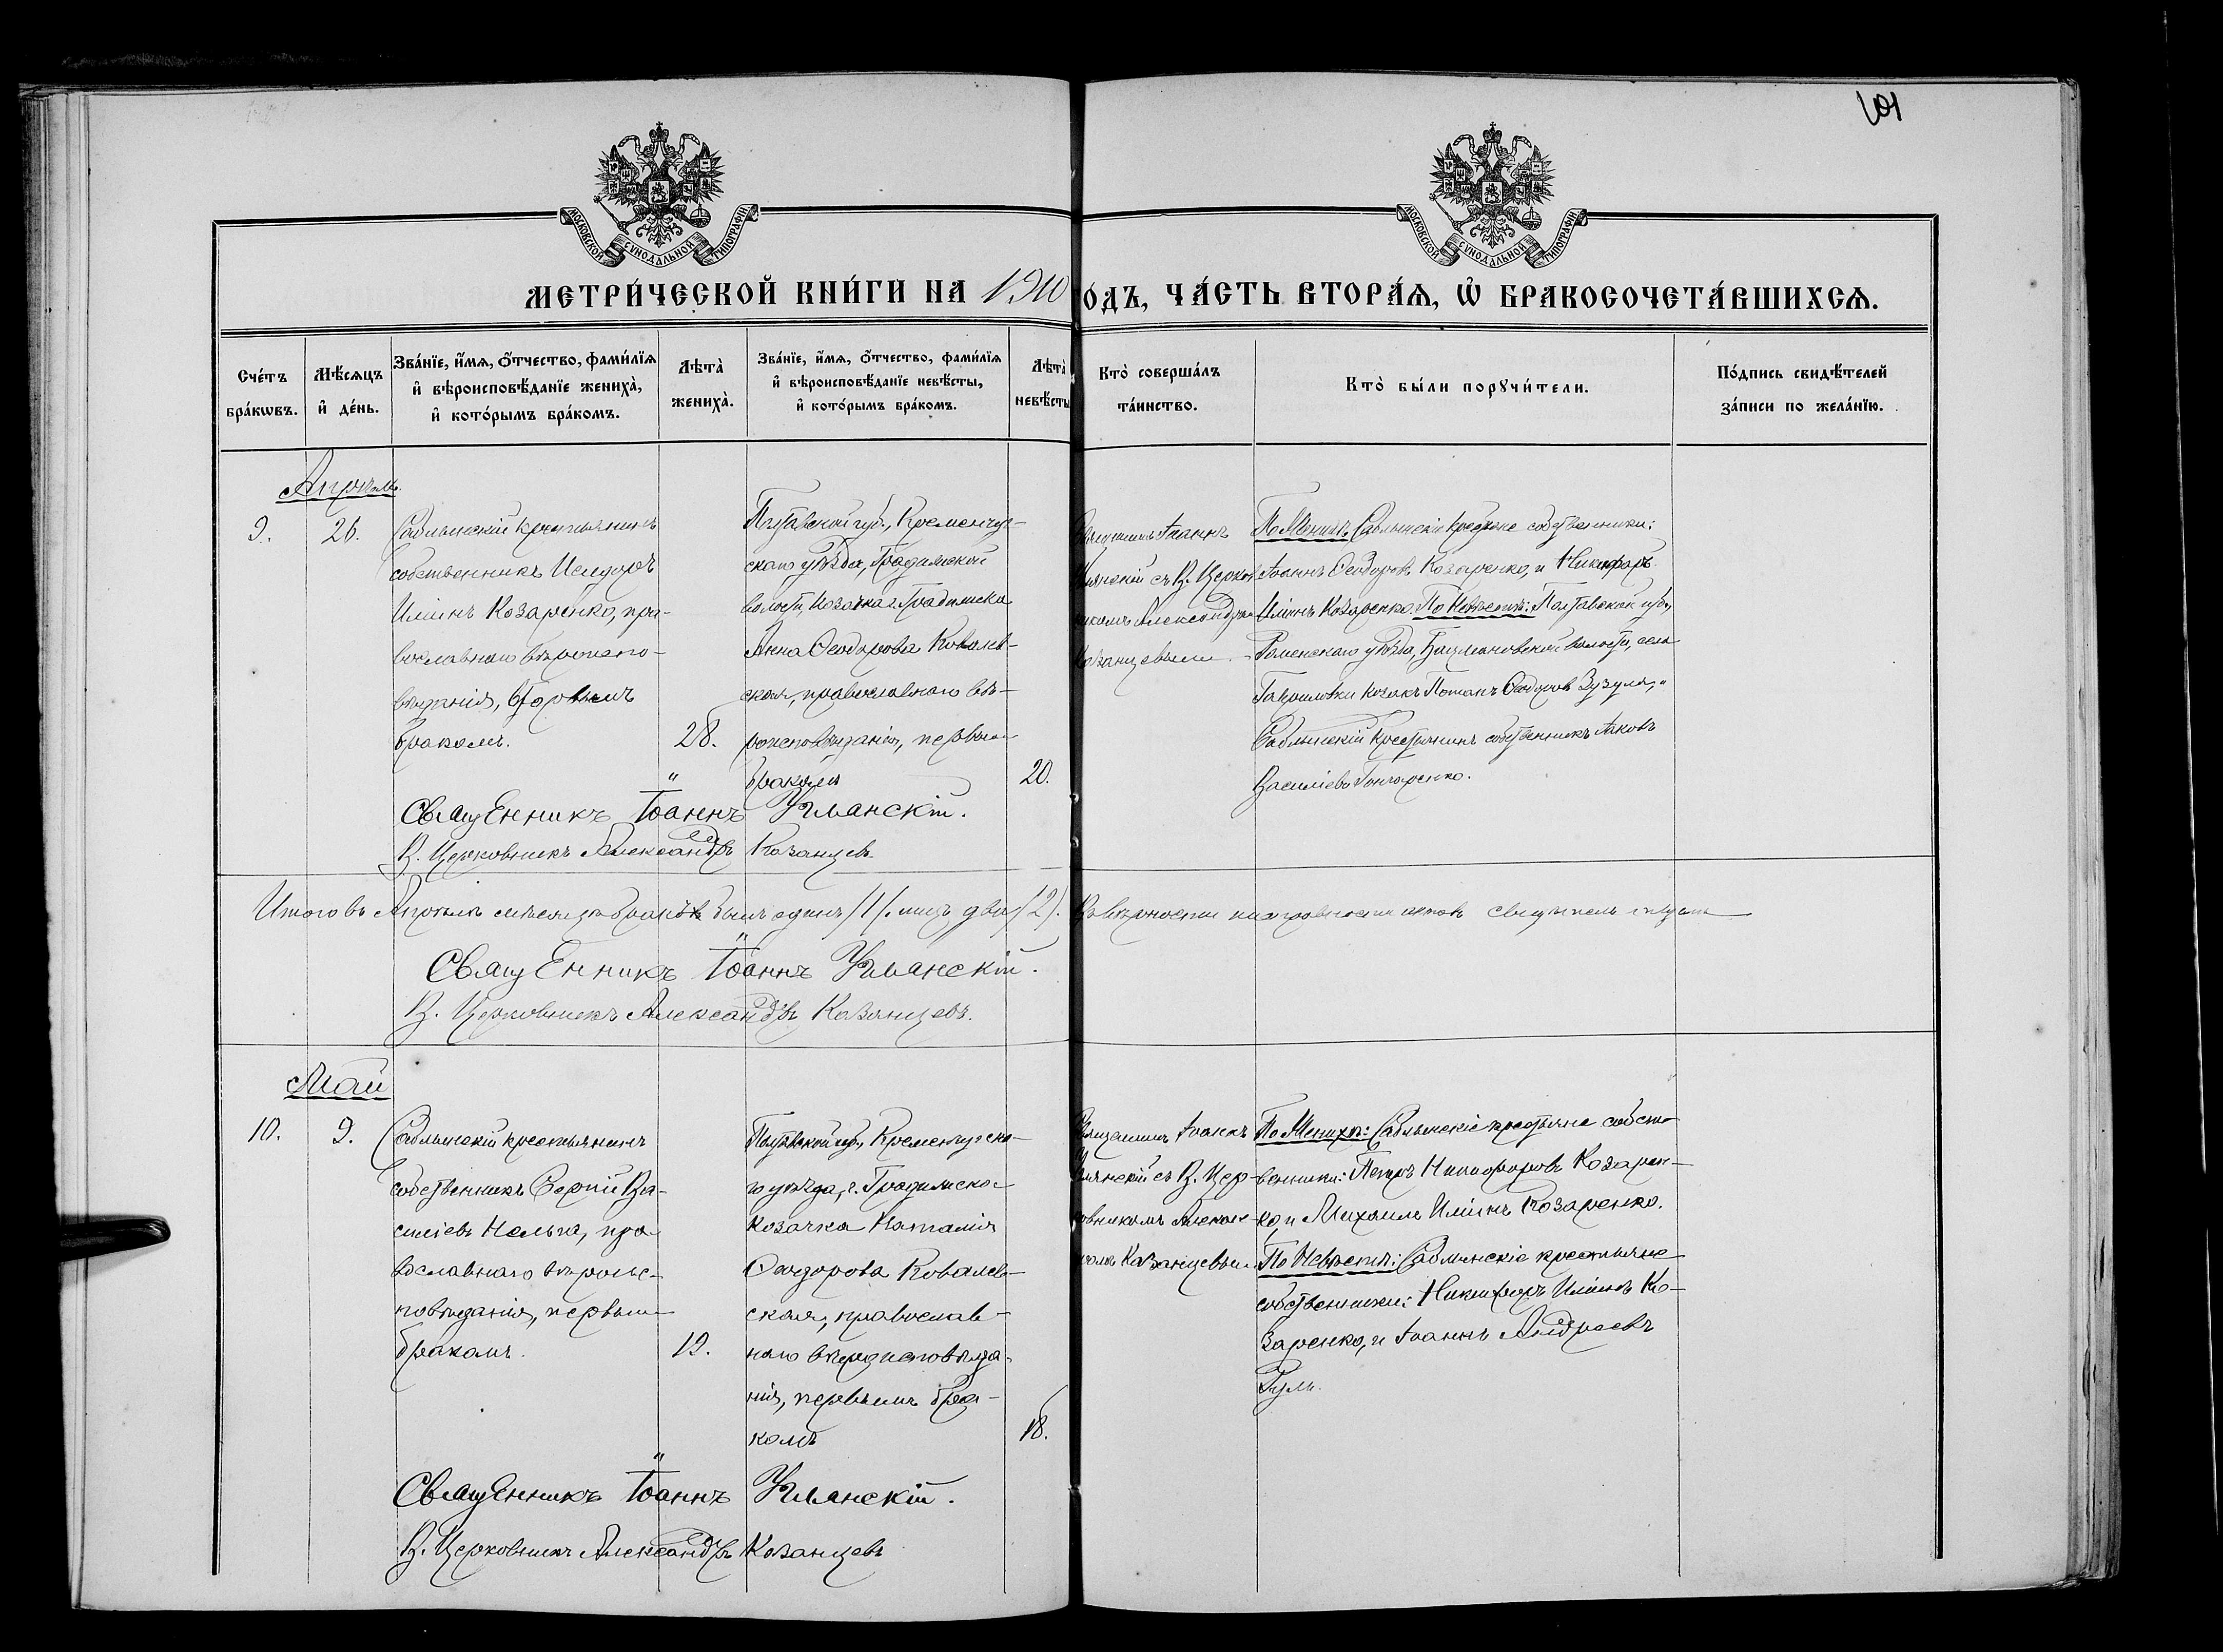 101
МОСКОВСКОЙ СѴНОДАЛЬНОЙ ТИПОГРАФІИ
МОСКОВСКОЙ СѴНОДАЛЬНОЙ ТИПОГРАФІИ
МЕТРИ́ЧЕСКОЙ КНИ́ГИ НА 1910
О́ДЪ, ЧА́СТЬ ВТОРА́Ѧ, Ѡ҆ БРАКОСОЧЕТА́ВШИХСѦ.
Сче́тъ бра́кѡвъ.
Мѣ́сѧцъ и҆ де́нь.
Зва́нїе, и҆́мѧ, ѻ҆́тчество, фами́лїѧ
и҆ вѣроисповѣ́данїе жениха̀,
и҆ кото́рымъ бра́комъ.
Лѣта̀ жениха̀.
Зва́нїе, и҆́мѧ, ѻ҆́тчество, фами́лїѧ
и҆ вѣроисповѣ́данїе невѣ́сты,
и҆ кото́рымъ бра́комъ.
Лѣта̀ невѣ́сты
Кто̀ соверша́лъ
та́инство.
Кто̀ бы́ли порꙋчи́тели.
По́дпись свидѣ́телей
за́писи по жела́нїю.
Апрѣль.
9.
26.
Саблынскій крестьянинъ
собственникъ Исидоръ
Иліинъ Козаренко, пра-
вославнаго вѣроиспо-
вѣданія, вторымъ
бракомъ.
28.
Полтавской губ., Кременчуг-
скаго уѣзда, Градижской
волости, козачка г. Градижска
Анна Ѳеодорова Ковалев-
ская, православнаго вѣ-
роисповѣданія, первым
бракомъ
20.
Священникъ Іоаннъ
Уманскій съ В. Церков
никомъ Александром
Козанцевымъ
По Женихѣ: Саблынскіе крестьяне собственники:
Іоаннъ Ѳеодоровъ Козаренко, и Никифоръ
Иліинъ Козаренко. По Невѣстѣ: Полтавской губ.,
Роменскаго уѣзда, волости, села
Гавриловки козакъ Ѳеодоровъ Зузуля, и
Саблынскій крестьянинъ собственникъ Іаковъ
Василіевъ Гончаренко.
Священникъ Іоаннъ Уманскій.
В. Церковникъ Александръ Козанцевъ
Итого въ Апрѣлѣ мѣсяцѣ браковъ былъ одинъ /1/. лицъ два /2/.
Въ вѣрности актовъ
Священникъ Іоаннъ Уманскій.
В. Церковникъ Александръ Козанцевъ.
Май
10.
9.
Саблынскій крестьянинъ
собственникъ Сергій Ва-
силіевъ пра-
вославнаго вѣроис-
повѣданія, первым
бракомъ.
19.
Полтавской губ., Кременчугска-
го уѣзда, г. Градижска
козачка Наталія
Ѳеодорова Ковалев-
ская, православ-
наго вѣроисповѣда-
нія, первымъ бра-
комъ
18.
Священникъ Іоаннъ
Уманскій съ В. Цер-
ковникомъ Алексан-
дромъ Козанцевым
По Женихѣ: Саблынскіе крестьяне собст-
венники: Петръ Никифоровъ Козарен-
ко, и Михаилъ Иліинъ Козаренко.
По Невѣстѣ: Саблынскіе крестьяне
собственники: Никифоръ Иліинъ Ко-
заренко, и Іоаннъ Андреевъ
Священникъ Іоаннъ Уманскій.
В. Церковникъ Александръ Козанцевъ